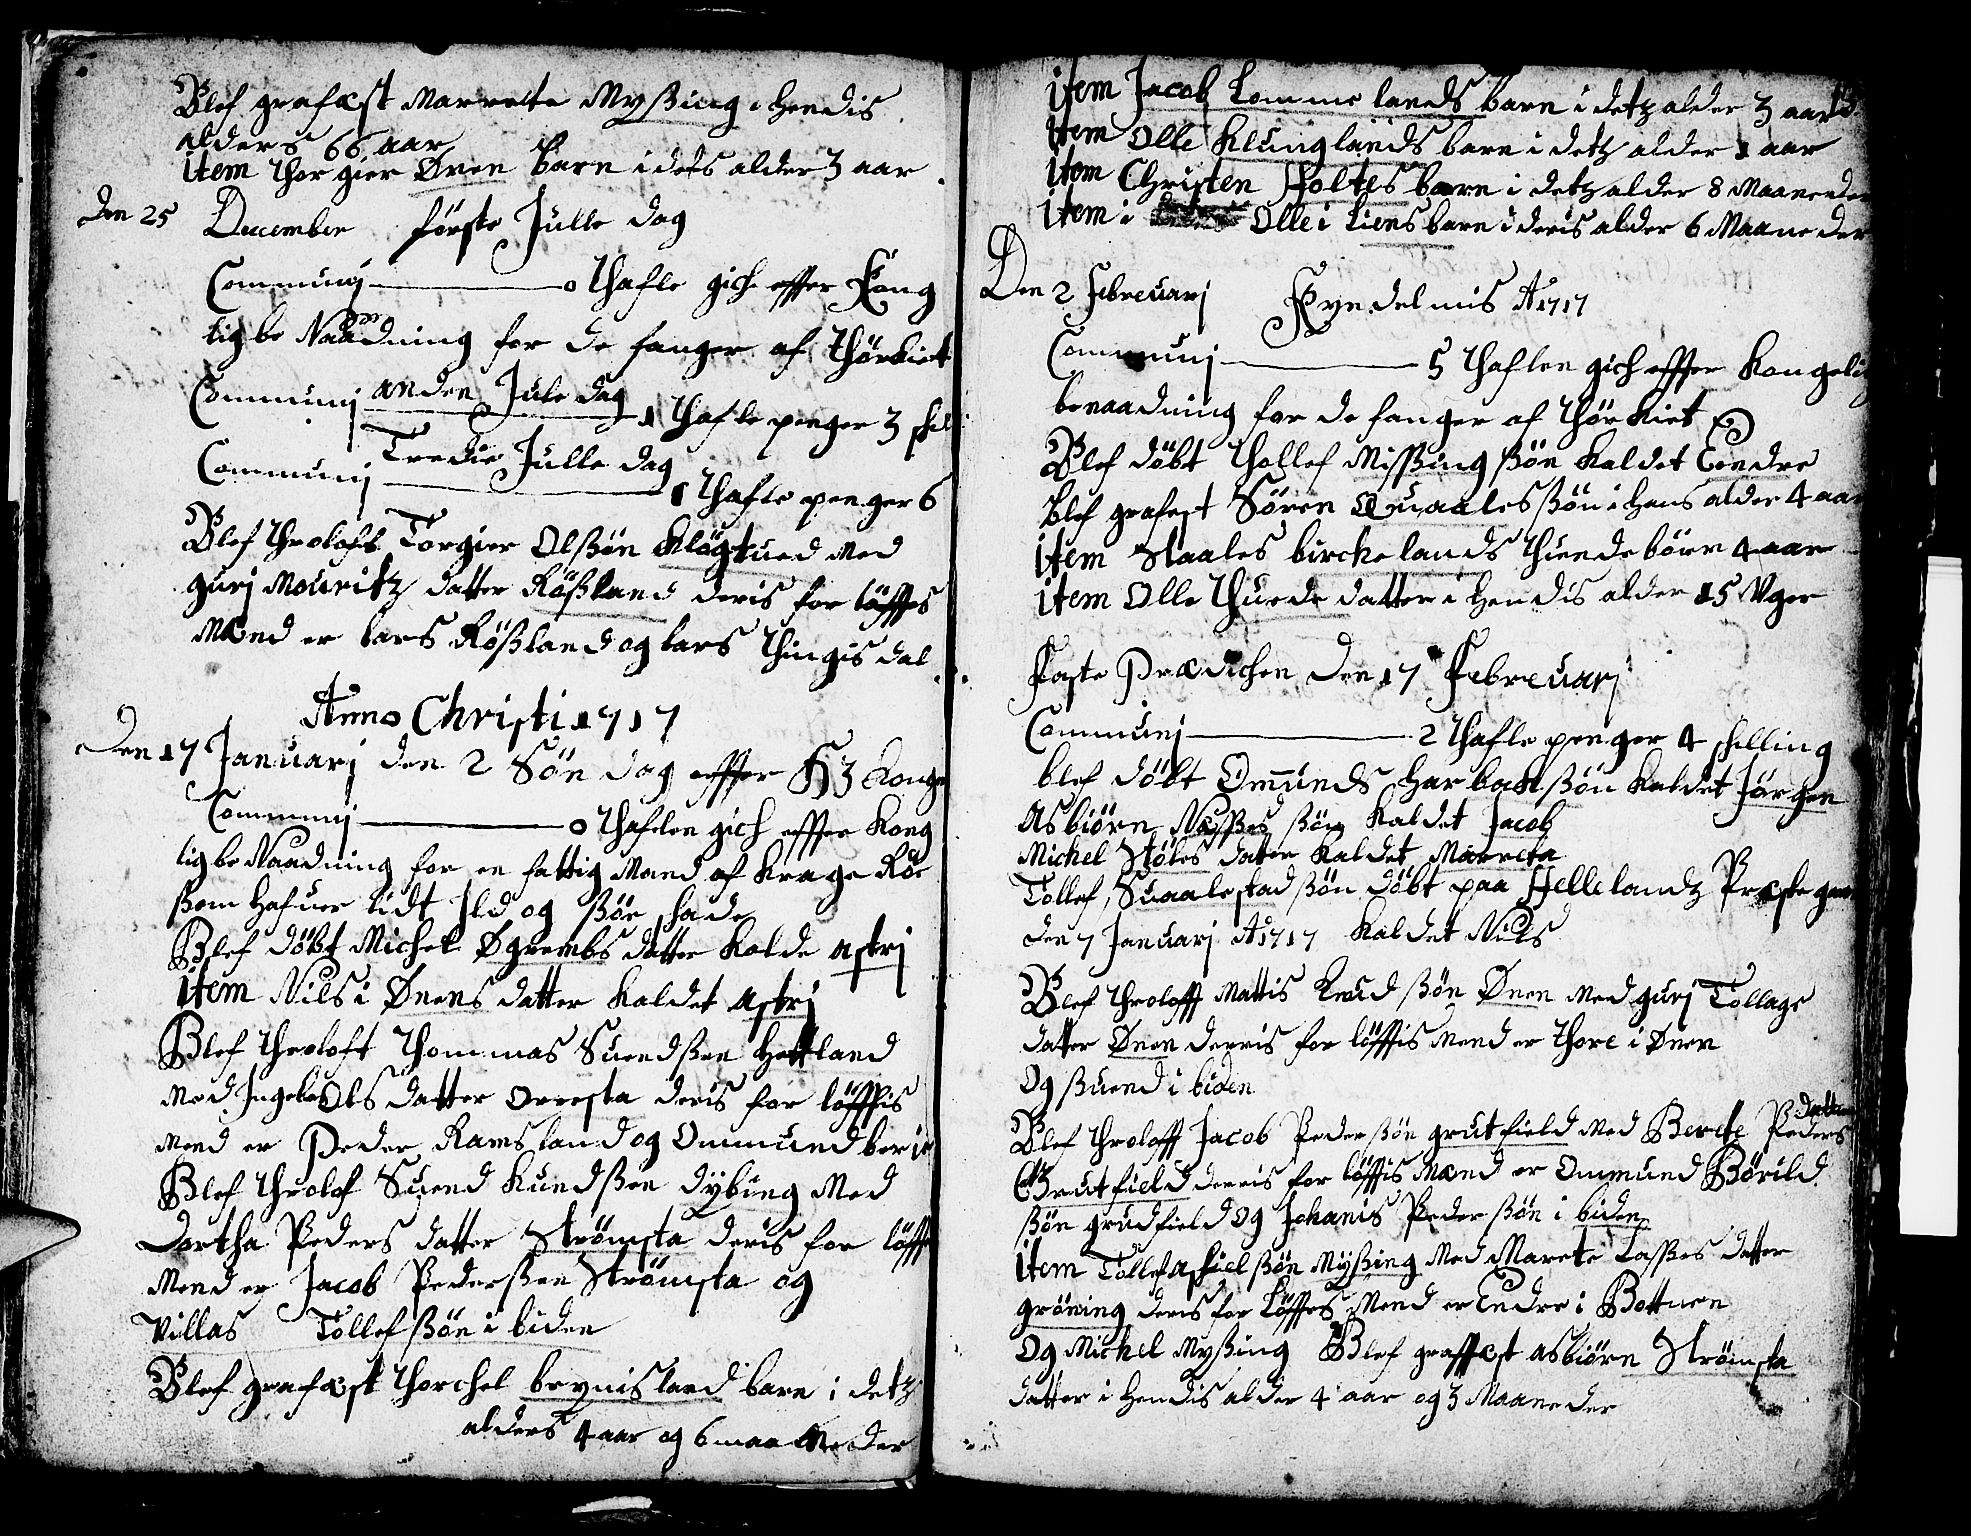 Blef grafæst Marrette Myßing i hendis
alders 66 aar
item Thorgier Ønen barn i dets alder 3 aar
den 25 December første Julle dag
Communj 0 thafle gich effter Kong
lig be Naadning for de fanger af thörkiet
anden Jule dag
Communj 1 thafle penger 3 skil
Tredie Julle dag
Communj 8 thafle penger 6
Blef throloft Torgier Olßön Klögtued Med
gurj Mouritz datter Rößland deris for löffes
Mænd er Lars Rößland og Lars Thingisdal
Anno Christi 1717
Den 17 Januarj den 2 Søn dag effter H 3 Konge
Communj 0 thaflen gich effter Kong
lig be Naadning for en fattig Mand af Krage Röe
ßom hafuer lidt Ild og ßöe skade
Blef döbt Michel Øgrembs datter Kalde Astrj
item Nils i Ønens datter Kaldet Astrj
Blef throloft Thommas Suendßen Hettland
Med Ingebor Ols datter Orresta deris for löffis
Mend er Peder Ramsland og Ommund
Blef throlof Suend Kundßen dybing Med
Dortha Peders datter Strömsta deris for löffis
Mend er Jacob Pederßen Strömsta og
Villas Tollefßön i biden
Blef grafæst Thorchel brynisland barn i detz
alders 4 aar og 6 maaneder
item Jacob Lommelands barn i detz alder 3 aar
item Olle Klunglands barn i detz alder 1 aar
item Christen Holtes barn i detz alder 8 Maaneder
item i Olle i Liens barn i deris alder 6 Maaneder
Den 2 Februarj Kyndelmis Ao 1717
Communj 5 thaflen gich effter Kongelig
benaadning for de fanger af thörkiet
Blef döbt Thollef Mißing ßön Kaldet Eendre
blef grafest Sören Quaales ßön i hans alder 4 aar
item Staales birckelands thuende börn 4 aar
item Olle Thuede datter i hendis alder 15 Uger
Faste Prædichen den 17 Februarj
Communj 2 thafle penger 4 skilling
blef döbt Omunds Harbak ßön Kaldet Jörgen
Asbiörn Næßes ßön Kaldet Jacob
Michel Stöles datter Kaldet Marreta
Tollef Suaalestad ßön döbt paa Hellelandz Præste
den 7 Januarj Ao 1717 Kaldet Nils
Blef throlofft Mattis Knud ßön Ønen Med gurj Tollags
datter Ønen derris for löffis Mend er Thore i Ønen
Og ßuend i biden
Blef throlofft Jacob Peder ßön grutfield Med Berete Peders datter
Grutfield derris for löffis Mænd er Ommund Börild
ßön grudfield og Johanis Peder ßön i biden
item Tollef Aßiel ßön Myßing Med Marete Laßes datter
gröning deris for Löffes Mend er Endre i Bottnen
Og Michel Myßing Blef graffæst Asbiörn Strömsta
datter i hendis alder 4 aar og 3 Maaneder